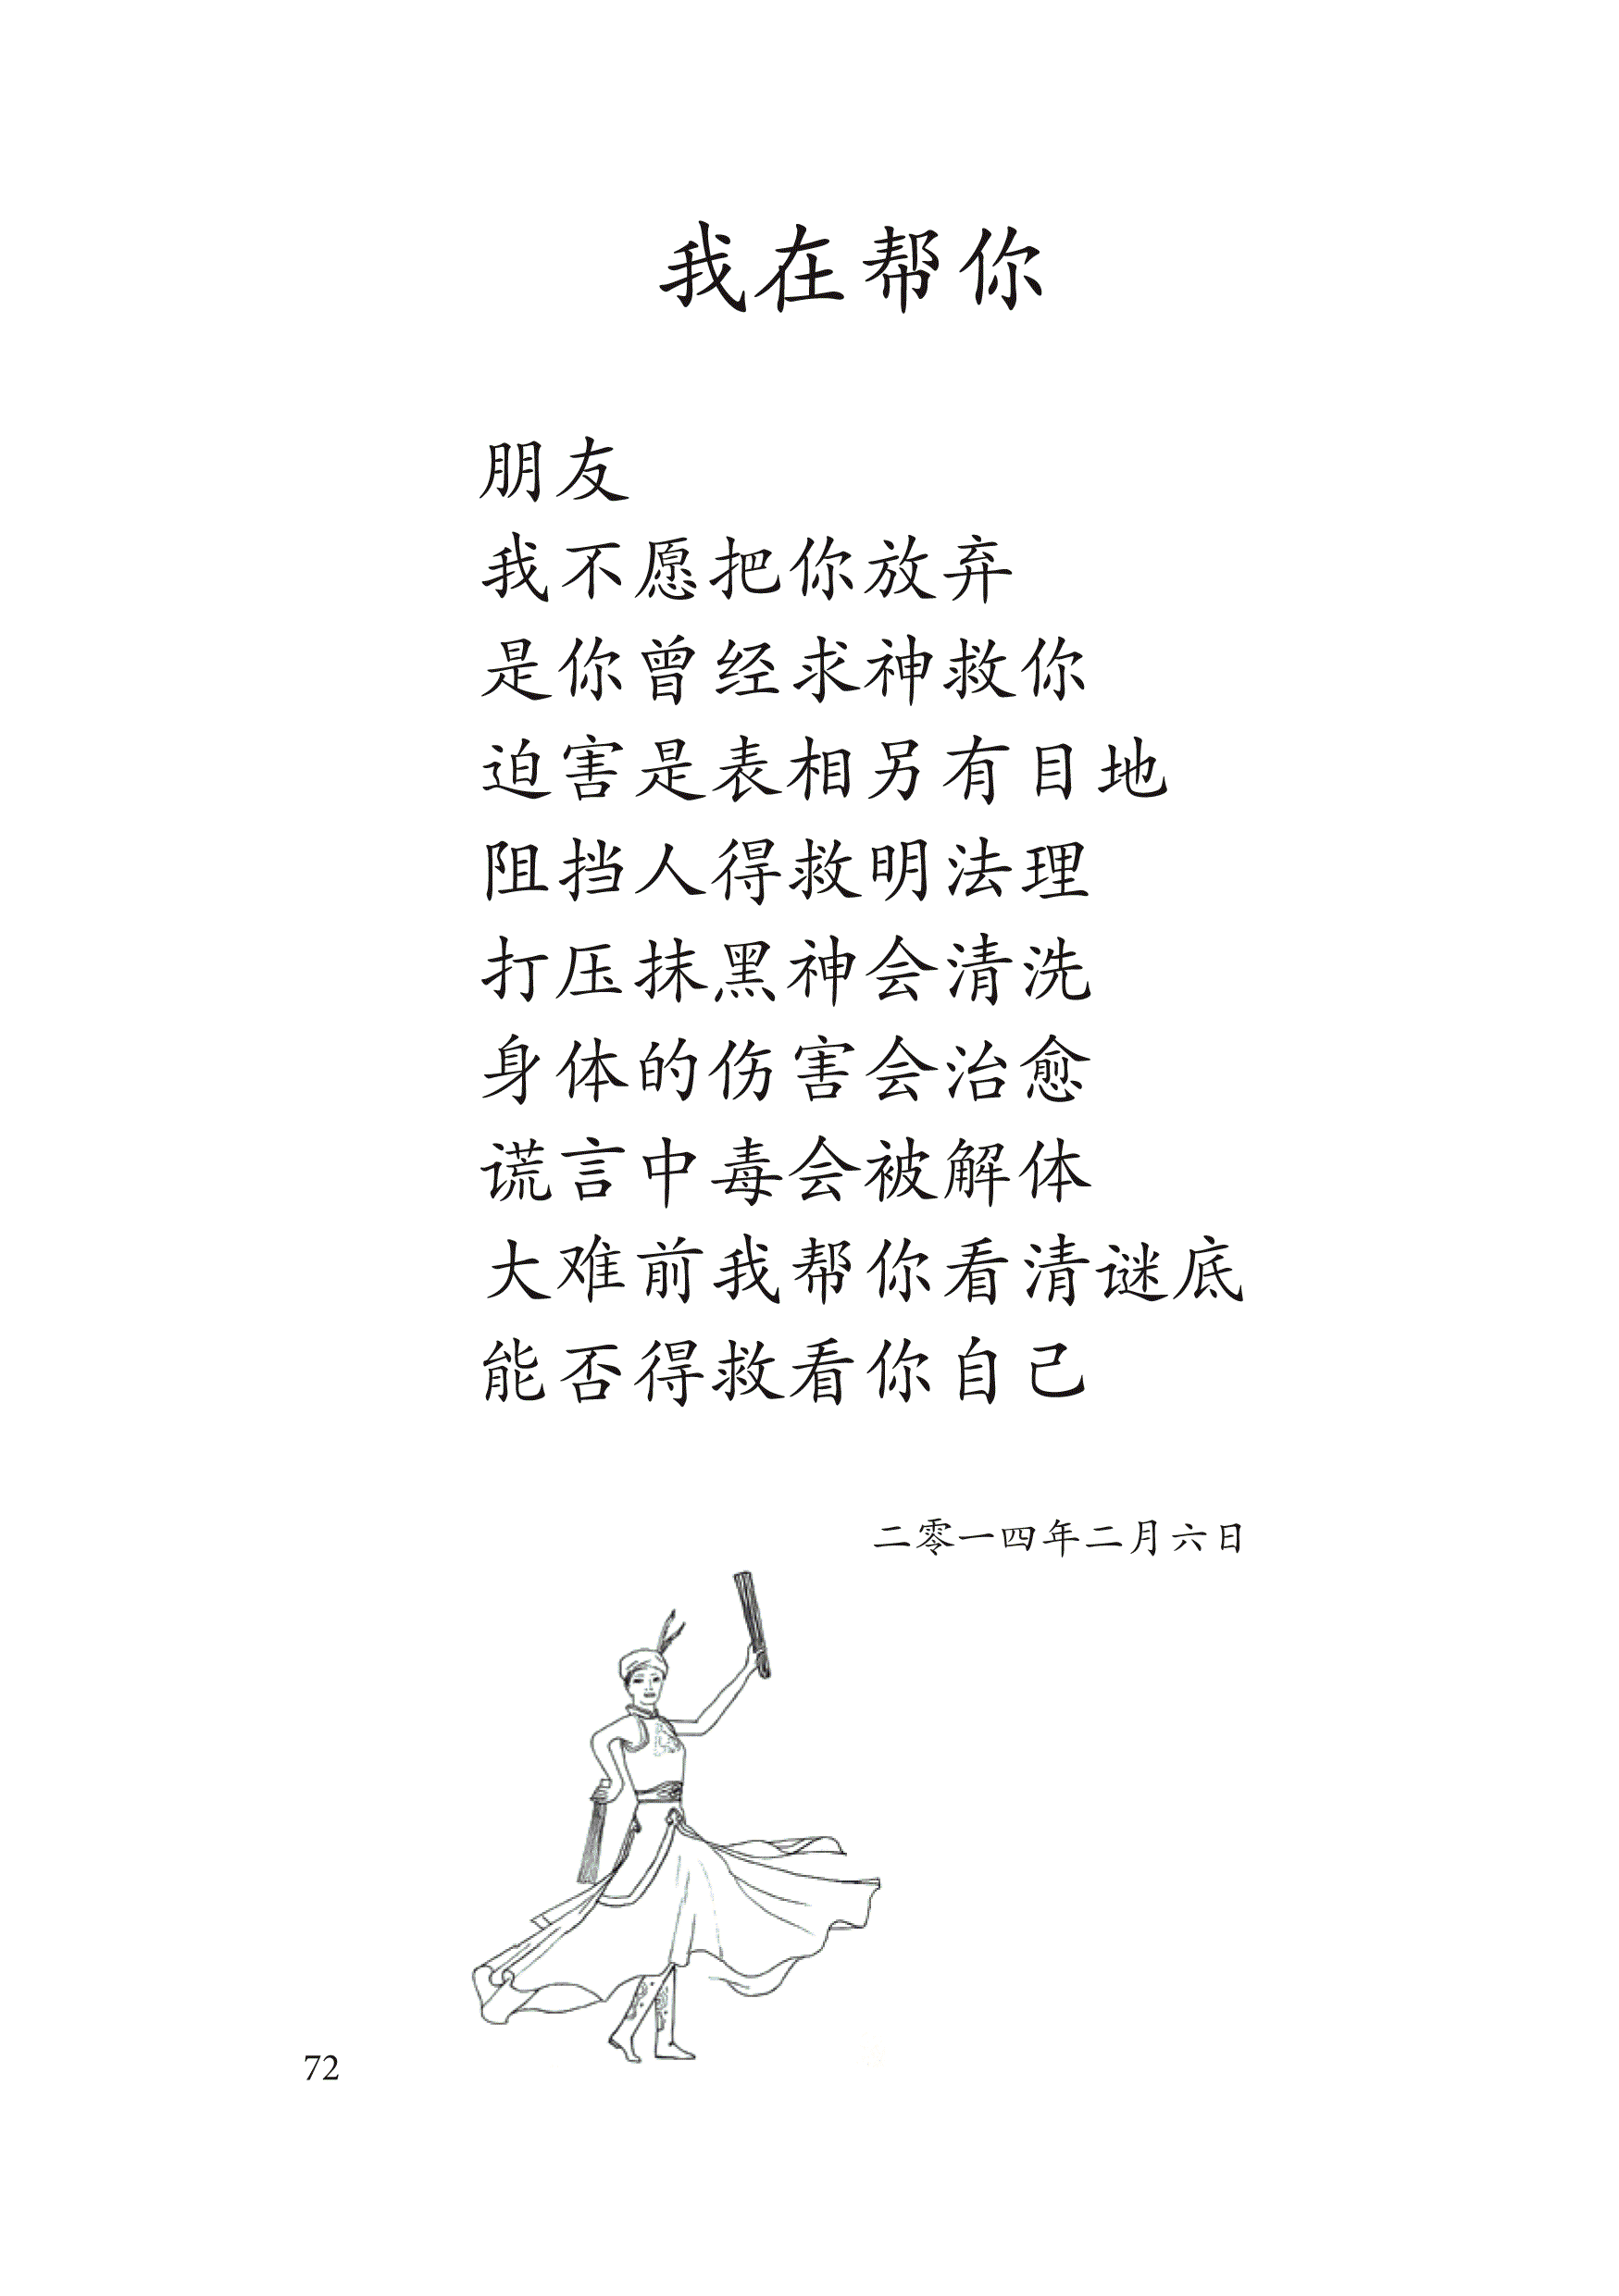 我在帮你
朋友
我不愿把你放弃
是你曾经求神救你
迫害是表相另有目地
阻挡人得救明法理
打压抹黑神会清洗
身体的伤害会治愈
谎言中毒会被解体
大难前我帮你看清谜底
能否得救看你自己
二零一四年二月六日
72